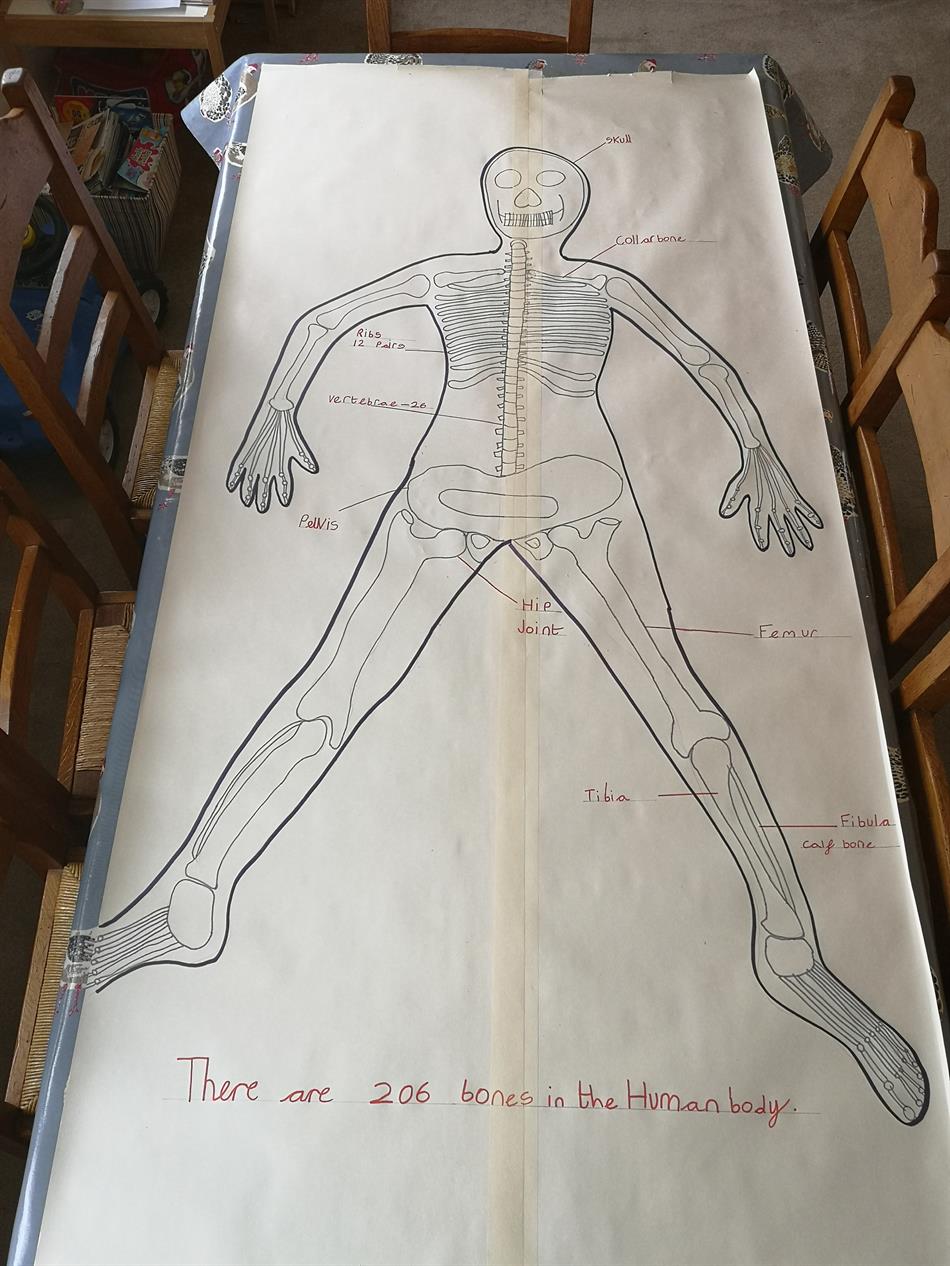 skull
Collarbone
Ribs
12 Pairs
Vertebrae - 26
Pelvis
Hip
Joint
Femur
Tibia
Fibula
calf bone
There are 206 bones in the Human body.